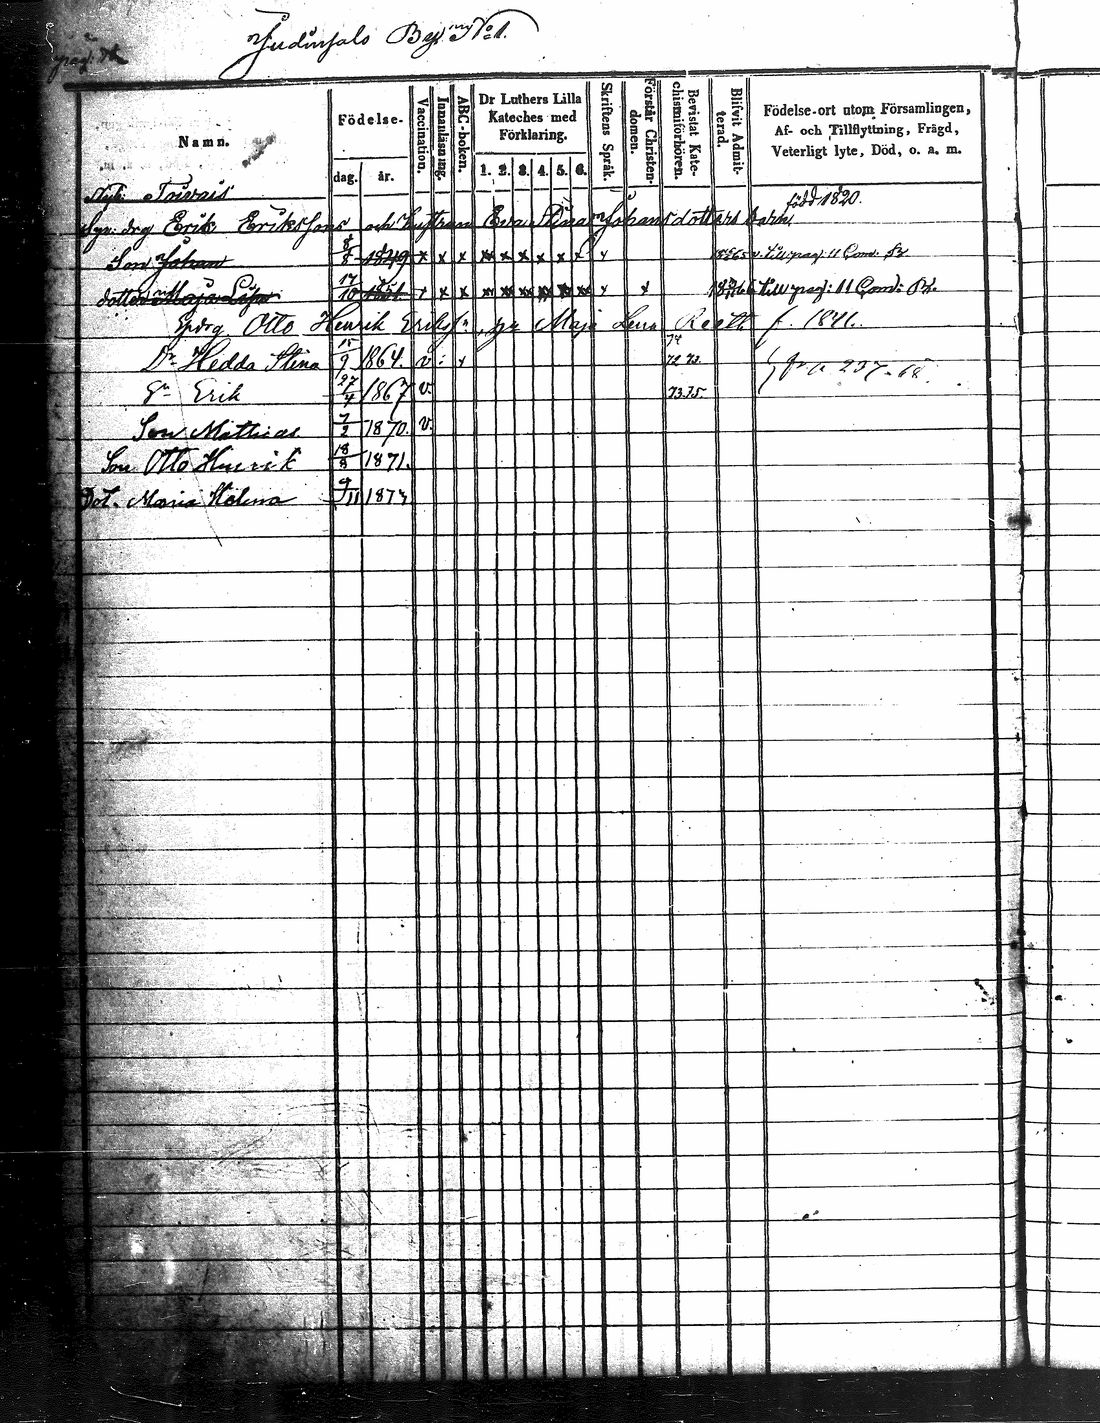 Judinsalo By. No 1.
pag:
Namn.
Födelse-
dag.
år.
Vaccination.
Innanläsning.
ABC-boken.
Dr Luthers Lilla Kateches med Förklaring.
1. 2. 3. 4. 5. 6.
Skriftens Språk.
Förstår Christendomen.
Bevistat Katechismiförhören.
Blifvit Admitterad.
Födelse-ort utom Församlingen,
Af- och Tillflyttning, Frägd,
Veterligt lyte, Död, o. a. m.
Toivais
född 1820.
drg Erik Erikssons och hustrun Eva Stina Johansdotters barn
Son Johan 8/8 1849 x x x x x x x x x x till pag: 11 Com. Bk
dotter Maja Lisa 17/10 1851 x x x x x x x x x x x till pag: 11 Com: Bk.
Otto Henrik Erikss:n, Maja Lena f. 1841.
Dr Hedda Stina 15/9 1864. v. x 74 72 73. fr a 237-68.
Sn Erik 27/4 1867 v. 73.75.
Son Mathias 7/2 1870. v.
Son Otto Henrik 18/8 1871.
Dot. Maria Helena 9/11 1873